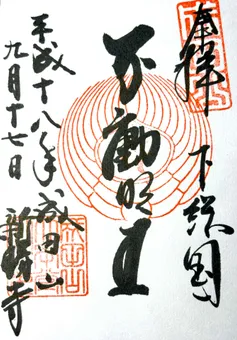 奉拝 下総国
不動明王
平成十八年成田山
九月十七日 新勝寺